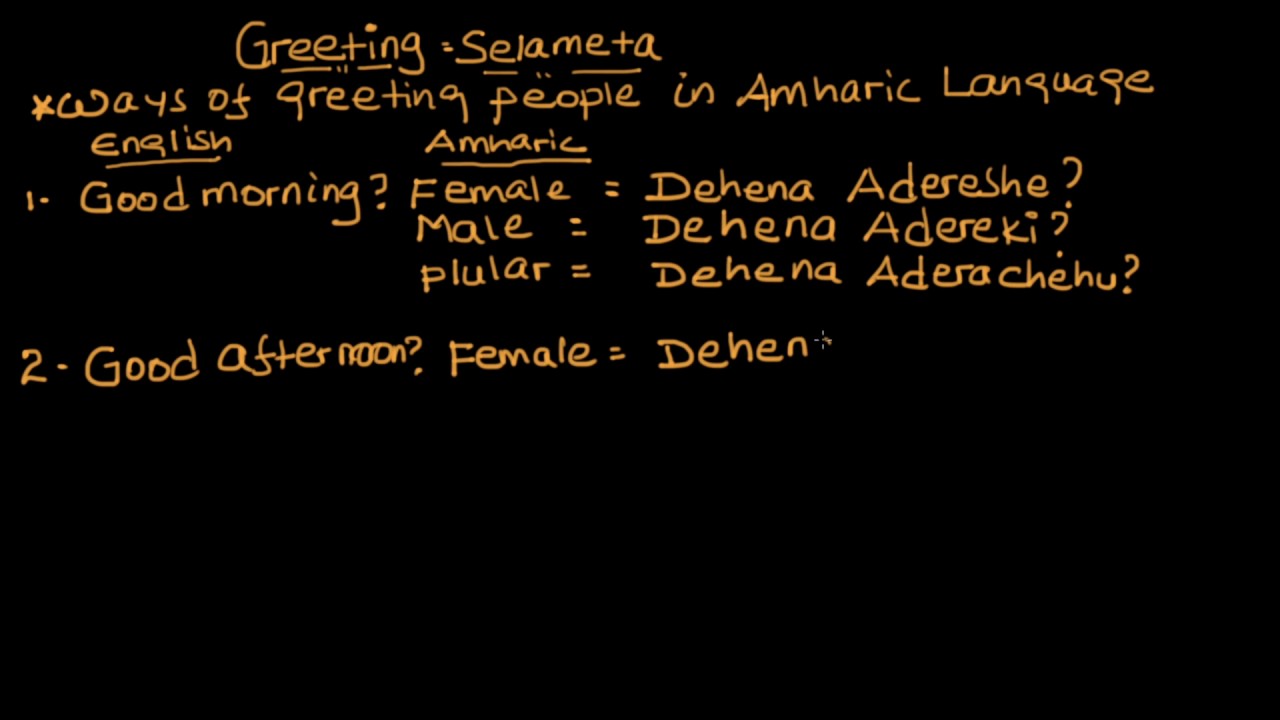 Greeting = Selameta
*Ways of greeting people in Amharic Language
English Amharic
1- Good morning? Female = Dehena Adereshe?
Male = Dehena Adereki?
plular = Dehena Aderachehu?
2- Good afternoon? Female = Dehen